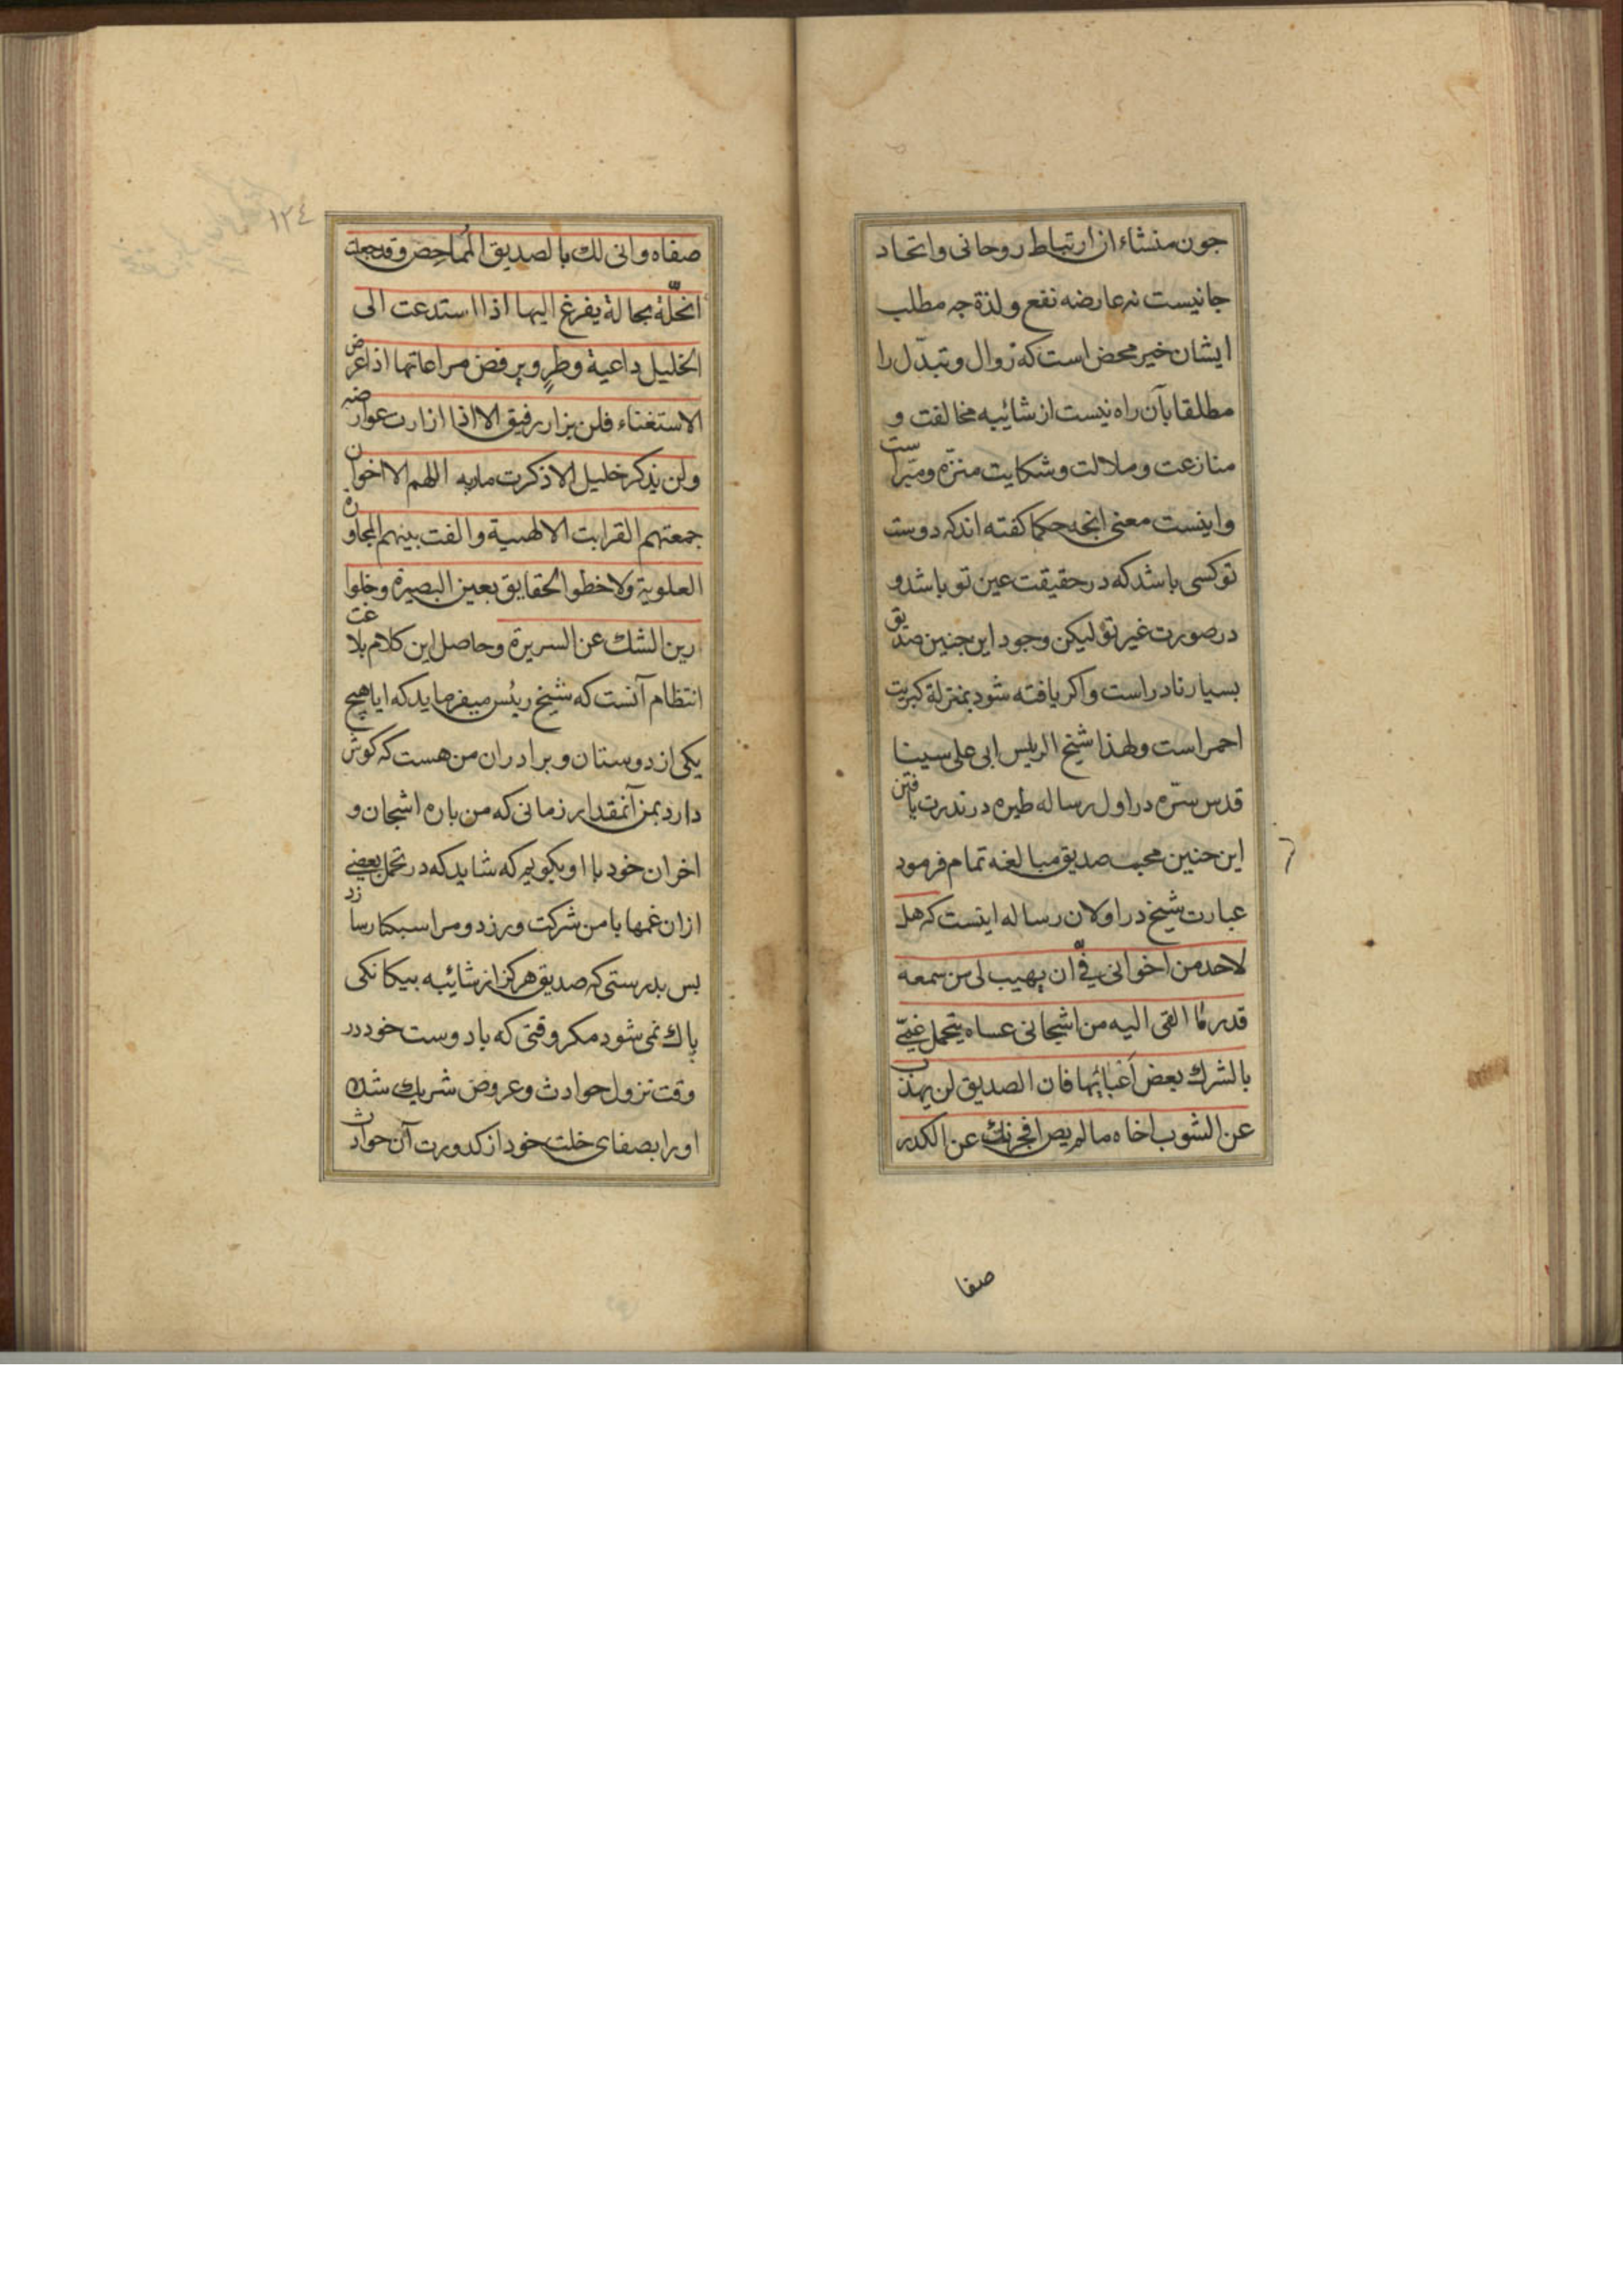 جون منشاء ان ارتباط روحانی واتحاد
جانیست نه عارضه نفع ولذة جه مطلب
ایشان خیر محض است که زوال وتبدّل را
مطلقا بآن راه نیست از شائبه مخالفت و
منازعت وملالت وشکایت منزه ومبّراست
واینست معنی انجه حکما کفته اند که دوست
تو کسی باشد که در حقیقت عین تو باشد و
در صورت غیر تو لیکن وجود این جنین صدیق
بسیار نادر است واکر یافته شود بمنزلة کبریت
احمر است ولهذا شیخ الریٔس ابی علی سینا
قدس سرّه در اول رساله طیره در ندرت یافتن
این جنین محب صدیق مبالغه تمام فرموده
عبارت شیخ در اول ان رساله اینست که هل
لاحد من اخوانی فی ان یهیب لی من سمعه
قدر ما القی الیه من اشجانی عساه یتحمل عنّی
بالشرک بعض اعبائها فان الصدیق لن یهذب
عن الشوب اخاه ما لم یصن عن الکدر
صفا
١٢٤
صفاه وانی لک بالصدیق المماحض وقد جعلت
الخلّة بحالة یفرغ الیها اذا استدعت الی
الخلیل داعیة وطرٍ ویرفض مراعاتها اذا عرض
الاستغناء فلن یزار رفیق الا اذا ازارت عوارضه
ولن یذکر خلیل الا ذکرت ماربه اللهم الا اخوان
جمعتهم القرابت الالهیة والفت بینهم المجاورة
العلویة ولاخظوا الحقایق بعین البصیرة وجلوا
رین الشک عن السریرة وحاصل این کلام بلاغت
انتظام آنست که شیخ ریٔس میفرماید که ایا هیچ
یکی از دوستان وبرادران من هست که کوش
دارد بمن آنمقدار زمانی که من باره اشجان و
اخزان خود با او بکویم که شاید که در تحمل بعضی
ازان غمها با من شرکت ورزد ومرا سبکبار سازد
بس بدرستی که صدیق هرکز از شائبه بیکانکی
پاک نمی شود مکر وقتی که با دوست خود در
وقت نزول حوادث وعروض شریک شده
او را بصفای خلت خود از کدورت آن حوادث